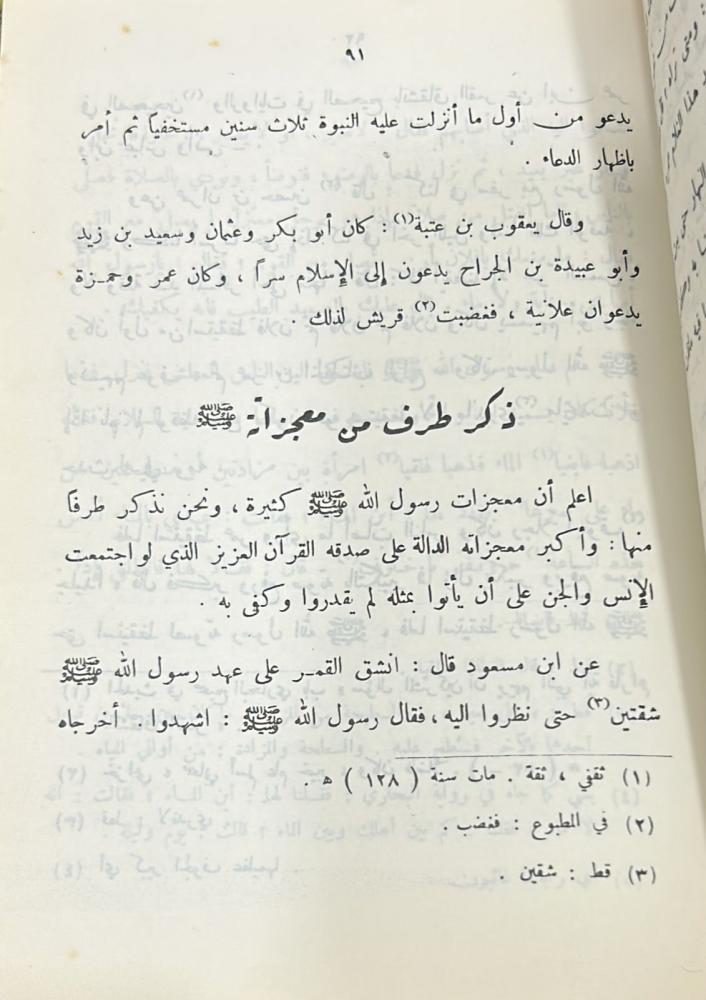 ٩١
يدعو من أول ما أنزلت عليه النبوة ثلاث سنين مستخفياً ثم أمر
باظهار الدعاء .
وقال يعقوب بن عتبة(١) : كان أبو بكر وعثمان وسعيد بن زيد
وأبو عبيدة بن الجراح يدعون إلى الإسلام سراً ، وكان عمر وحمزة
يدعوان علانية ، فغضبت(٢) قريش لذلك .
ذكر طرف من معجزاته ﷺ
اعلم أن معجزات رسول الله ﷺ كثيرة ، ونحن نذكر طرفاً
منها : وأكبر معجزاته الدالة على صدقه القرآن العزيز الذي لو اجتمعت
الإنس والجن على أن يأتوا بمثله لم يقدروا وكفى به .
عن ابن مسعود قال : انشق القمر على عهد رسول الله ﷺ
شقتين(٣) حتى نظروا اليه ، فقال رسول الله ﷺ : اشهدوا . أخرجاه
(١) ثقفي ، ثقة . مات سنة ( ١٢٨ ) ه .
(٢) في المطبوع : فغضب .
(٣) قط : شقين .